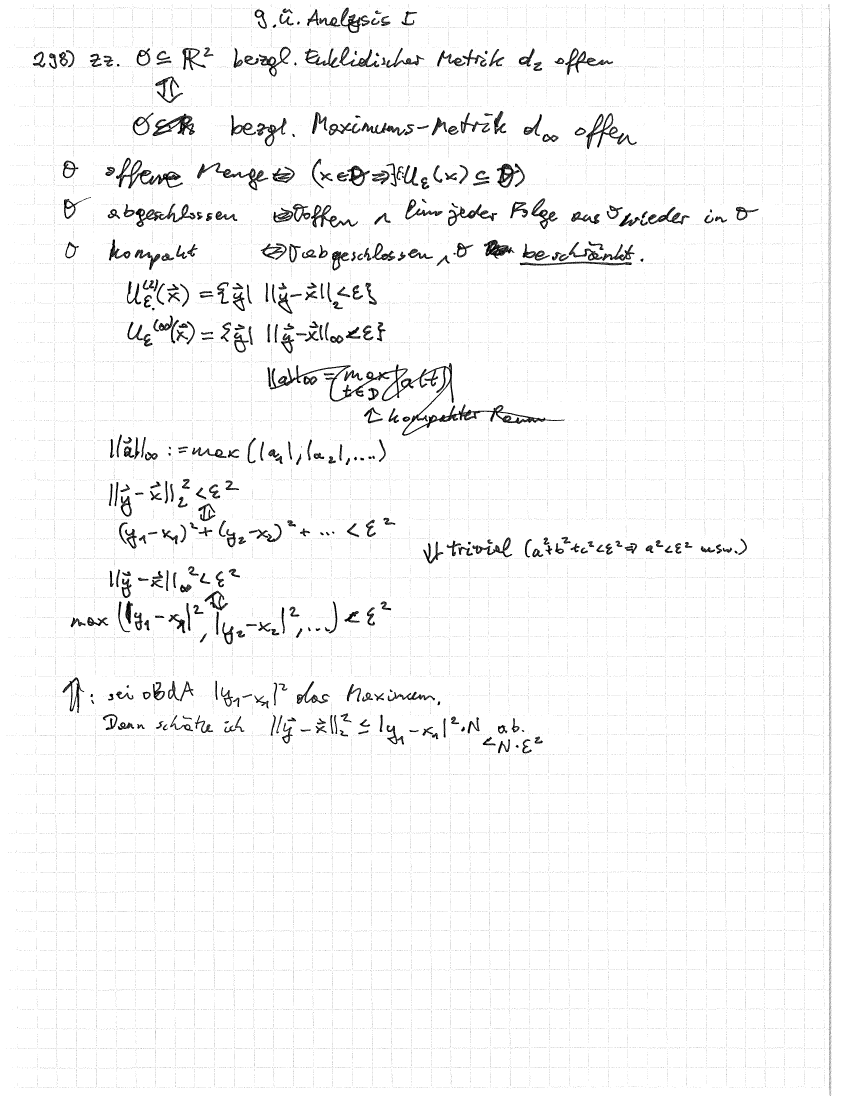 9. Ü. Analysis I
298) zz. O ⊆ ℝ² bezgl. Euklidischer Metrik d₂ offen
⇕
O bezgl. Maximums-Metrik d∞ offen
O offene Menge ⇔ (x ∈ O ⇒ ∃ε: Uε(x) ⊆ O)
O abgeschlossen ⇔ O offen ∧ Limes jeder Folge aus O wieder in O
O kompakt ⇔ O abgeschlossen ∧ O beschränkt.
Uε⁽²⁾(x⃗) = {y⃗ | ||y⃗ - x⃗||₂ < ε}
Uε⁽∞⁾(x⃗) = {y⃗ | ||y⃗ - x⃗||∞ < ε}
||a||∞ = (max t∈D |a(t)|
↑ kompakter Raum
||a⃗||∞ := max (|a₁|, |a₂|, ....)
||y⃗ - x⃗||₂² < ε²
⇕
(y₁ - x₁)² + (y₂ - x₂)² + ... < ε²
⇓ trivial (a² + b² + c² < ε² ⇒ a² < ε² usw.)
||y⃗ - x⃗||∞² < ε²
⇕
max (|y₁ - x₁|², |y₂ - x₂|², ...) < ε²
⇑: sei oBdA |y₁ - x₁|² das Maximum.
Dann schätze ich ||y⃗ - x⃗||₂² ≤ |y₁ - x₁|² · N ab.
< N · ε²